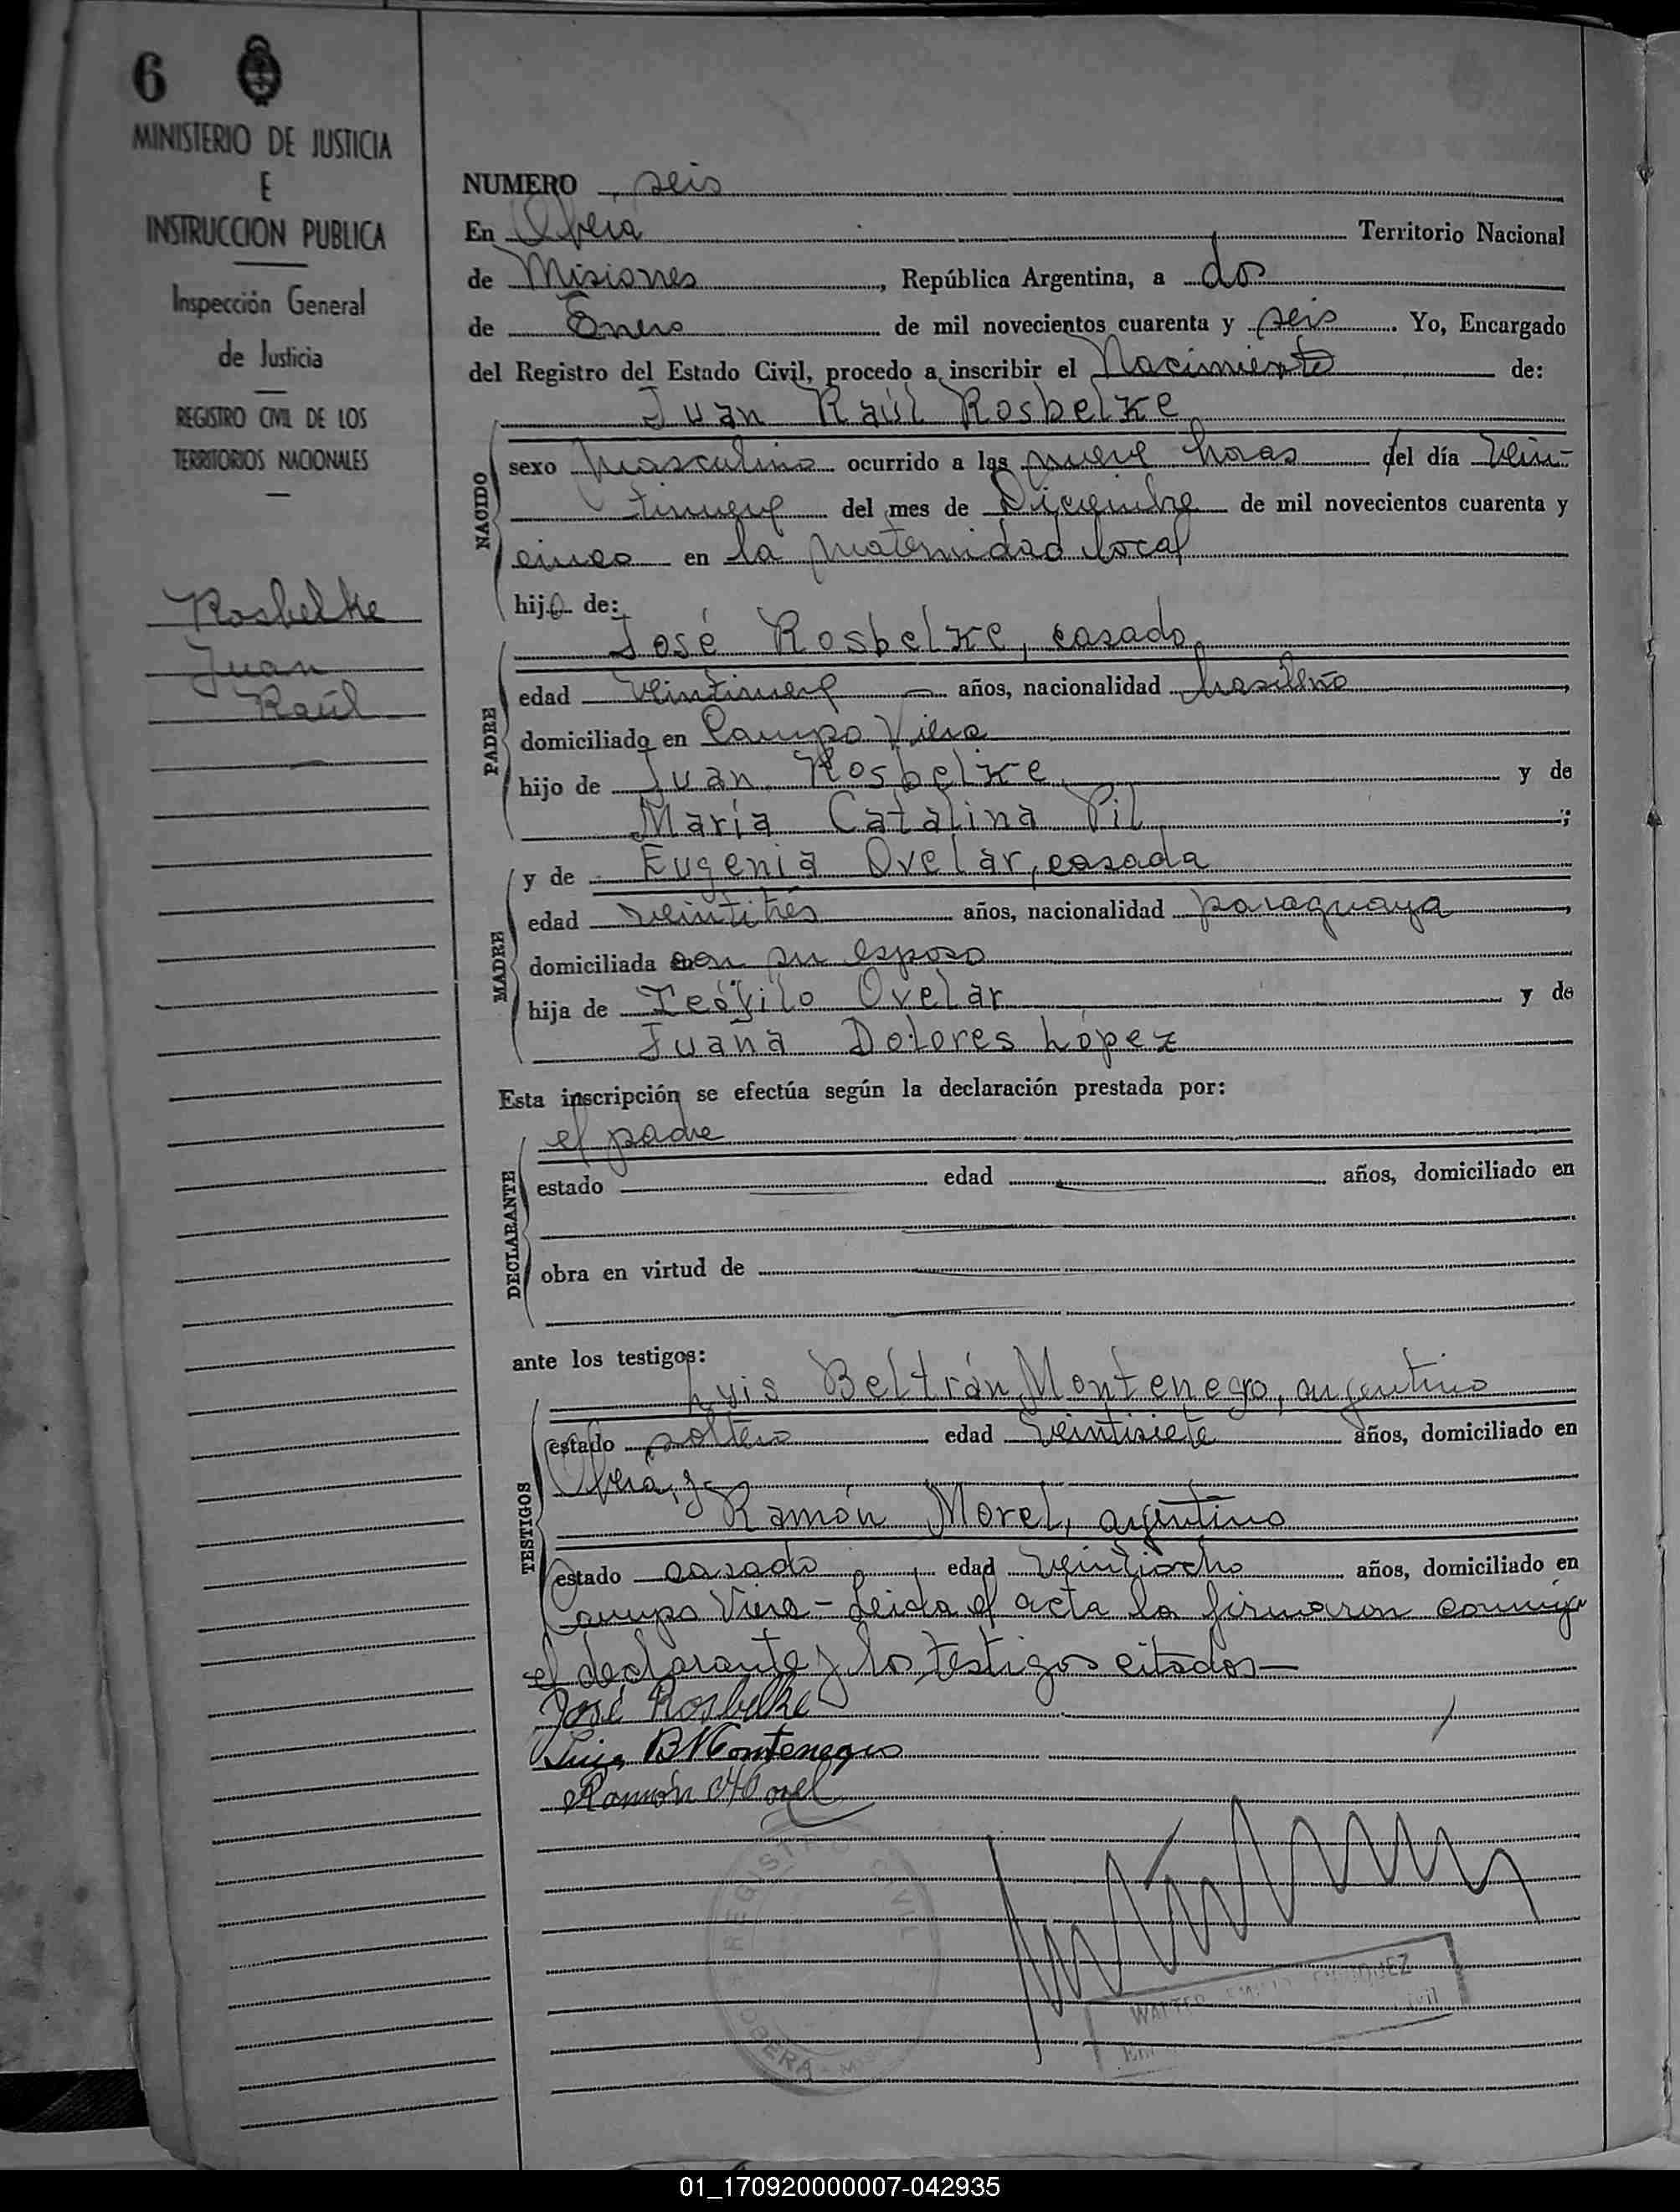 6
MINISTERIO DE JUSTICIA
E
INSTRUCCION PUBLICA
Inspección General
de Justicia
REGISTRO CIVIL DE LOS
TERRITORIOS NACIONALES
Rosbelke
Juan
Raúl
NUMERO seis
En Oberá Territorio Nacional
de Misiones, República Argentina, a dos
de Enero de mil novecientos cuarenta y seis. Yo, Encargado
del Registro del Estado Civil, procedo a inscribir el Nacimiento de:
Juan Raúl Rosbelke
NACIDO
sexo masculino ocurrido a las nueve horas del día vein-
tinueve del mes de Diciembre de mil novecientos cuarenta y
cinco en la maternidad local
hijo de:
PADRE
José Rosbelke, casado
edad veintinueve años, nacionalidad brasileño,
domiciliado en Campo Viera
hijo de Juan Rosbelke y de
María Catalina Pil;
MADRE
y de Eugenia Ovelar, casada
edad veintitrés años, nacionalidad paraguaya,
domiciliada con su esposo
hija de Teófilo Ovelar y de
Juana Dolores López
Esta inscripción se efectúa según la declaración prestada por:
DECLARANTE
el padre
estado edad años, domiciliado en
obra en virtud de
ante los testigos:
TESTIGOS
Luis Beltrán Montenegro, argentino
estado soltero edad veintisiete años, domiciliado en
Oberá, y
Ramón Morel, argentino
estado casado edad veintiocho años, domiciliado en
Campo Viera - Leida el acta la firmaron conmigo
el declarante y los testigos citados—
José Rosbelke
Luis B Montenegro
Ramón Morel
REGISTRO CIVIL
OBERA
WALTER
01_170920000007-042935